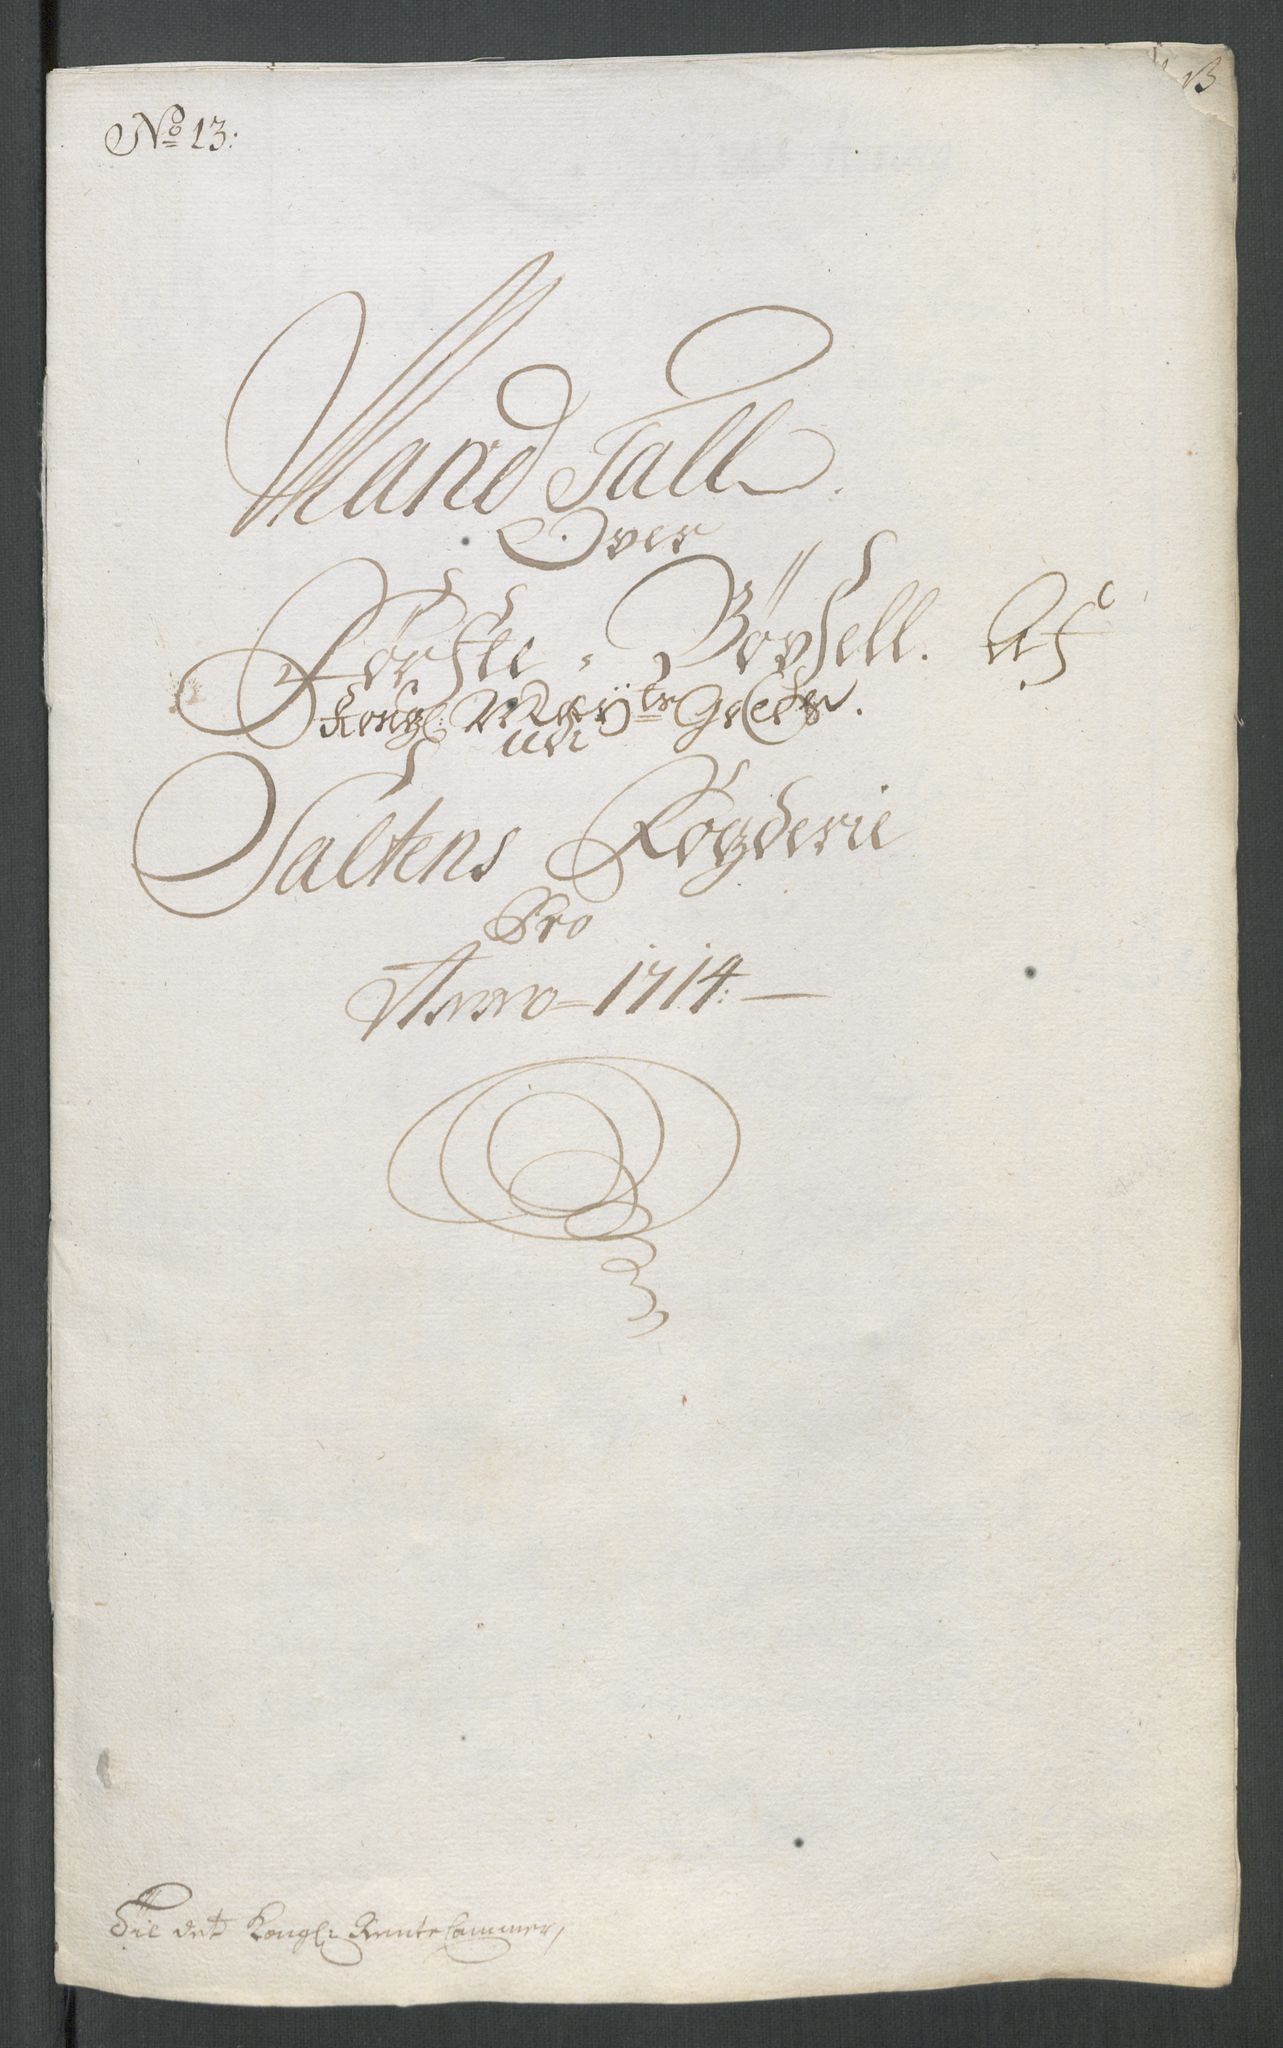 No 13:
B
Mand Tall
Over
Førſte, Bøyſell. Af
Kongl: Maÿts
udi
Saltens Fogderie
Pro
Anno 1714:
Til det Kongl: Rente Cammer,